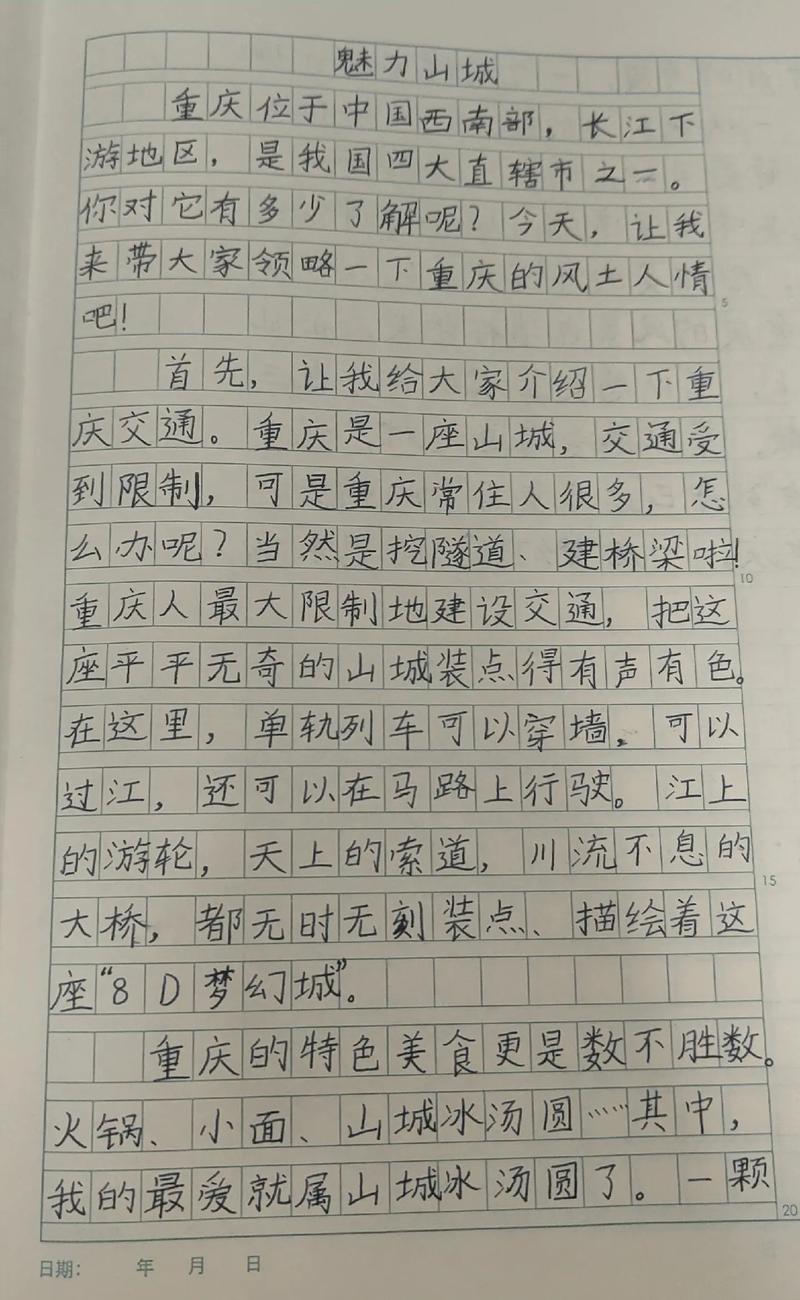 魅力山城
重庆位于中国西南部，长江下
游地区，是我国四大直辖市之一。
你对它有多少了解呢？今天，让我
来带大家领略一下重庆的风土人情
吧！
5
首先，让我给大家介绍一下重
庆交通。重庆是一座山城，交通受
到限制，可是重庆常住人很多，怎
么办呢？当然是挖隧道、建桥梁啦！
10
重庆人最大限制地建设交通，把这
座平平无奇的山城装点得有声有色。
在这里，单轨列车可以穿墙，可以
过江，还可以在马路上行驶。江上
的游轮，天上的索道，川流不息的
15
大桥，都无时无刻装点、描绘着这
座“8D梦幻城”。
重庆的特色美食更是数不胜数。
火锅、小面、山城冰汤圆……其中，
我的最爱就属山城冰汤圆了。一颗
20
日期： 年 月 日